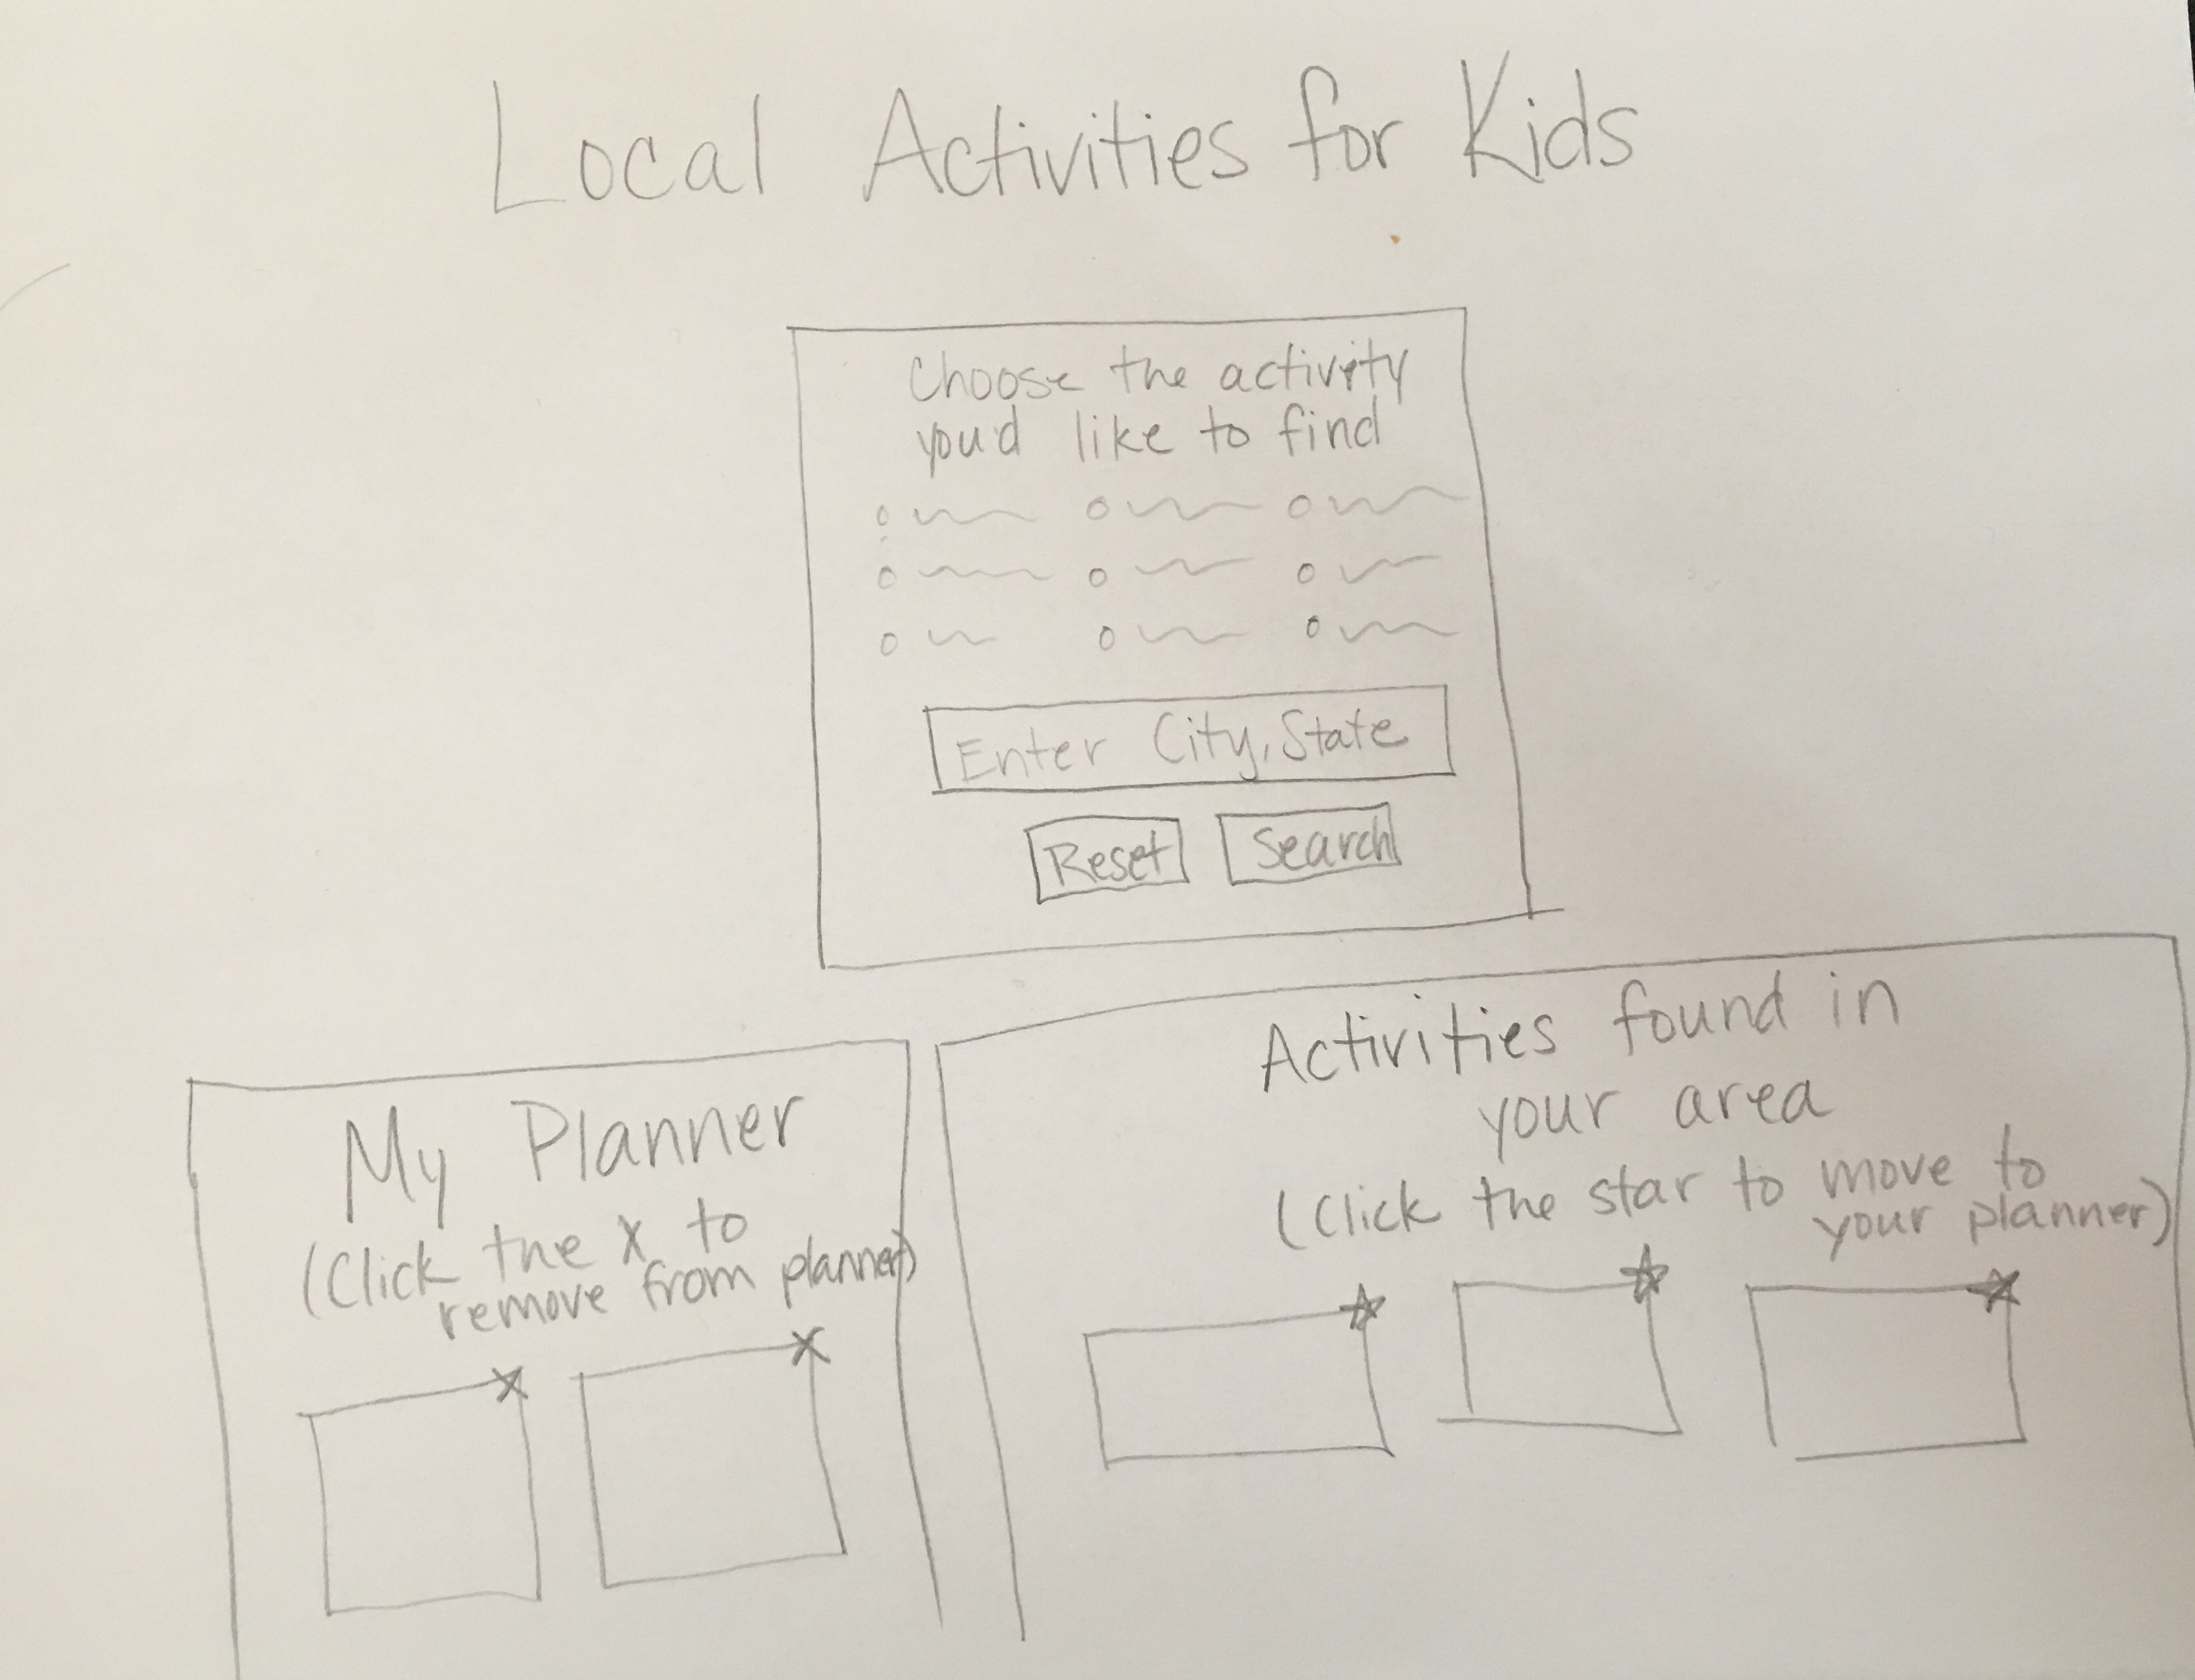 Local Activities for Kids
Choose the activity
you'd like to find
Enter City, State
Reset Search
My Planner
(Click the X to
remove from planner)
Activities found in
your area
(Click the star to move to
your planner)